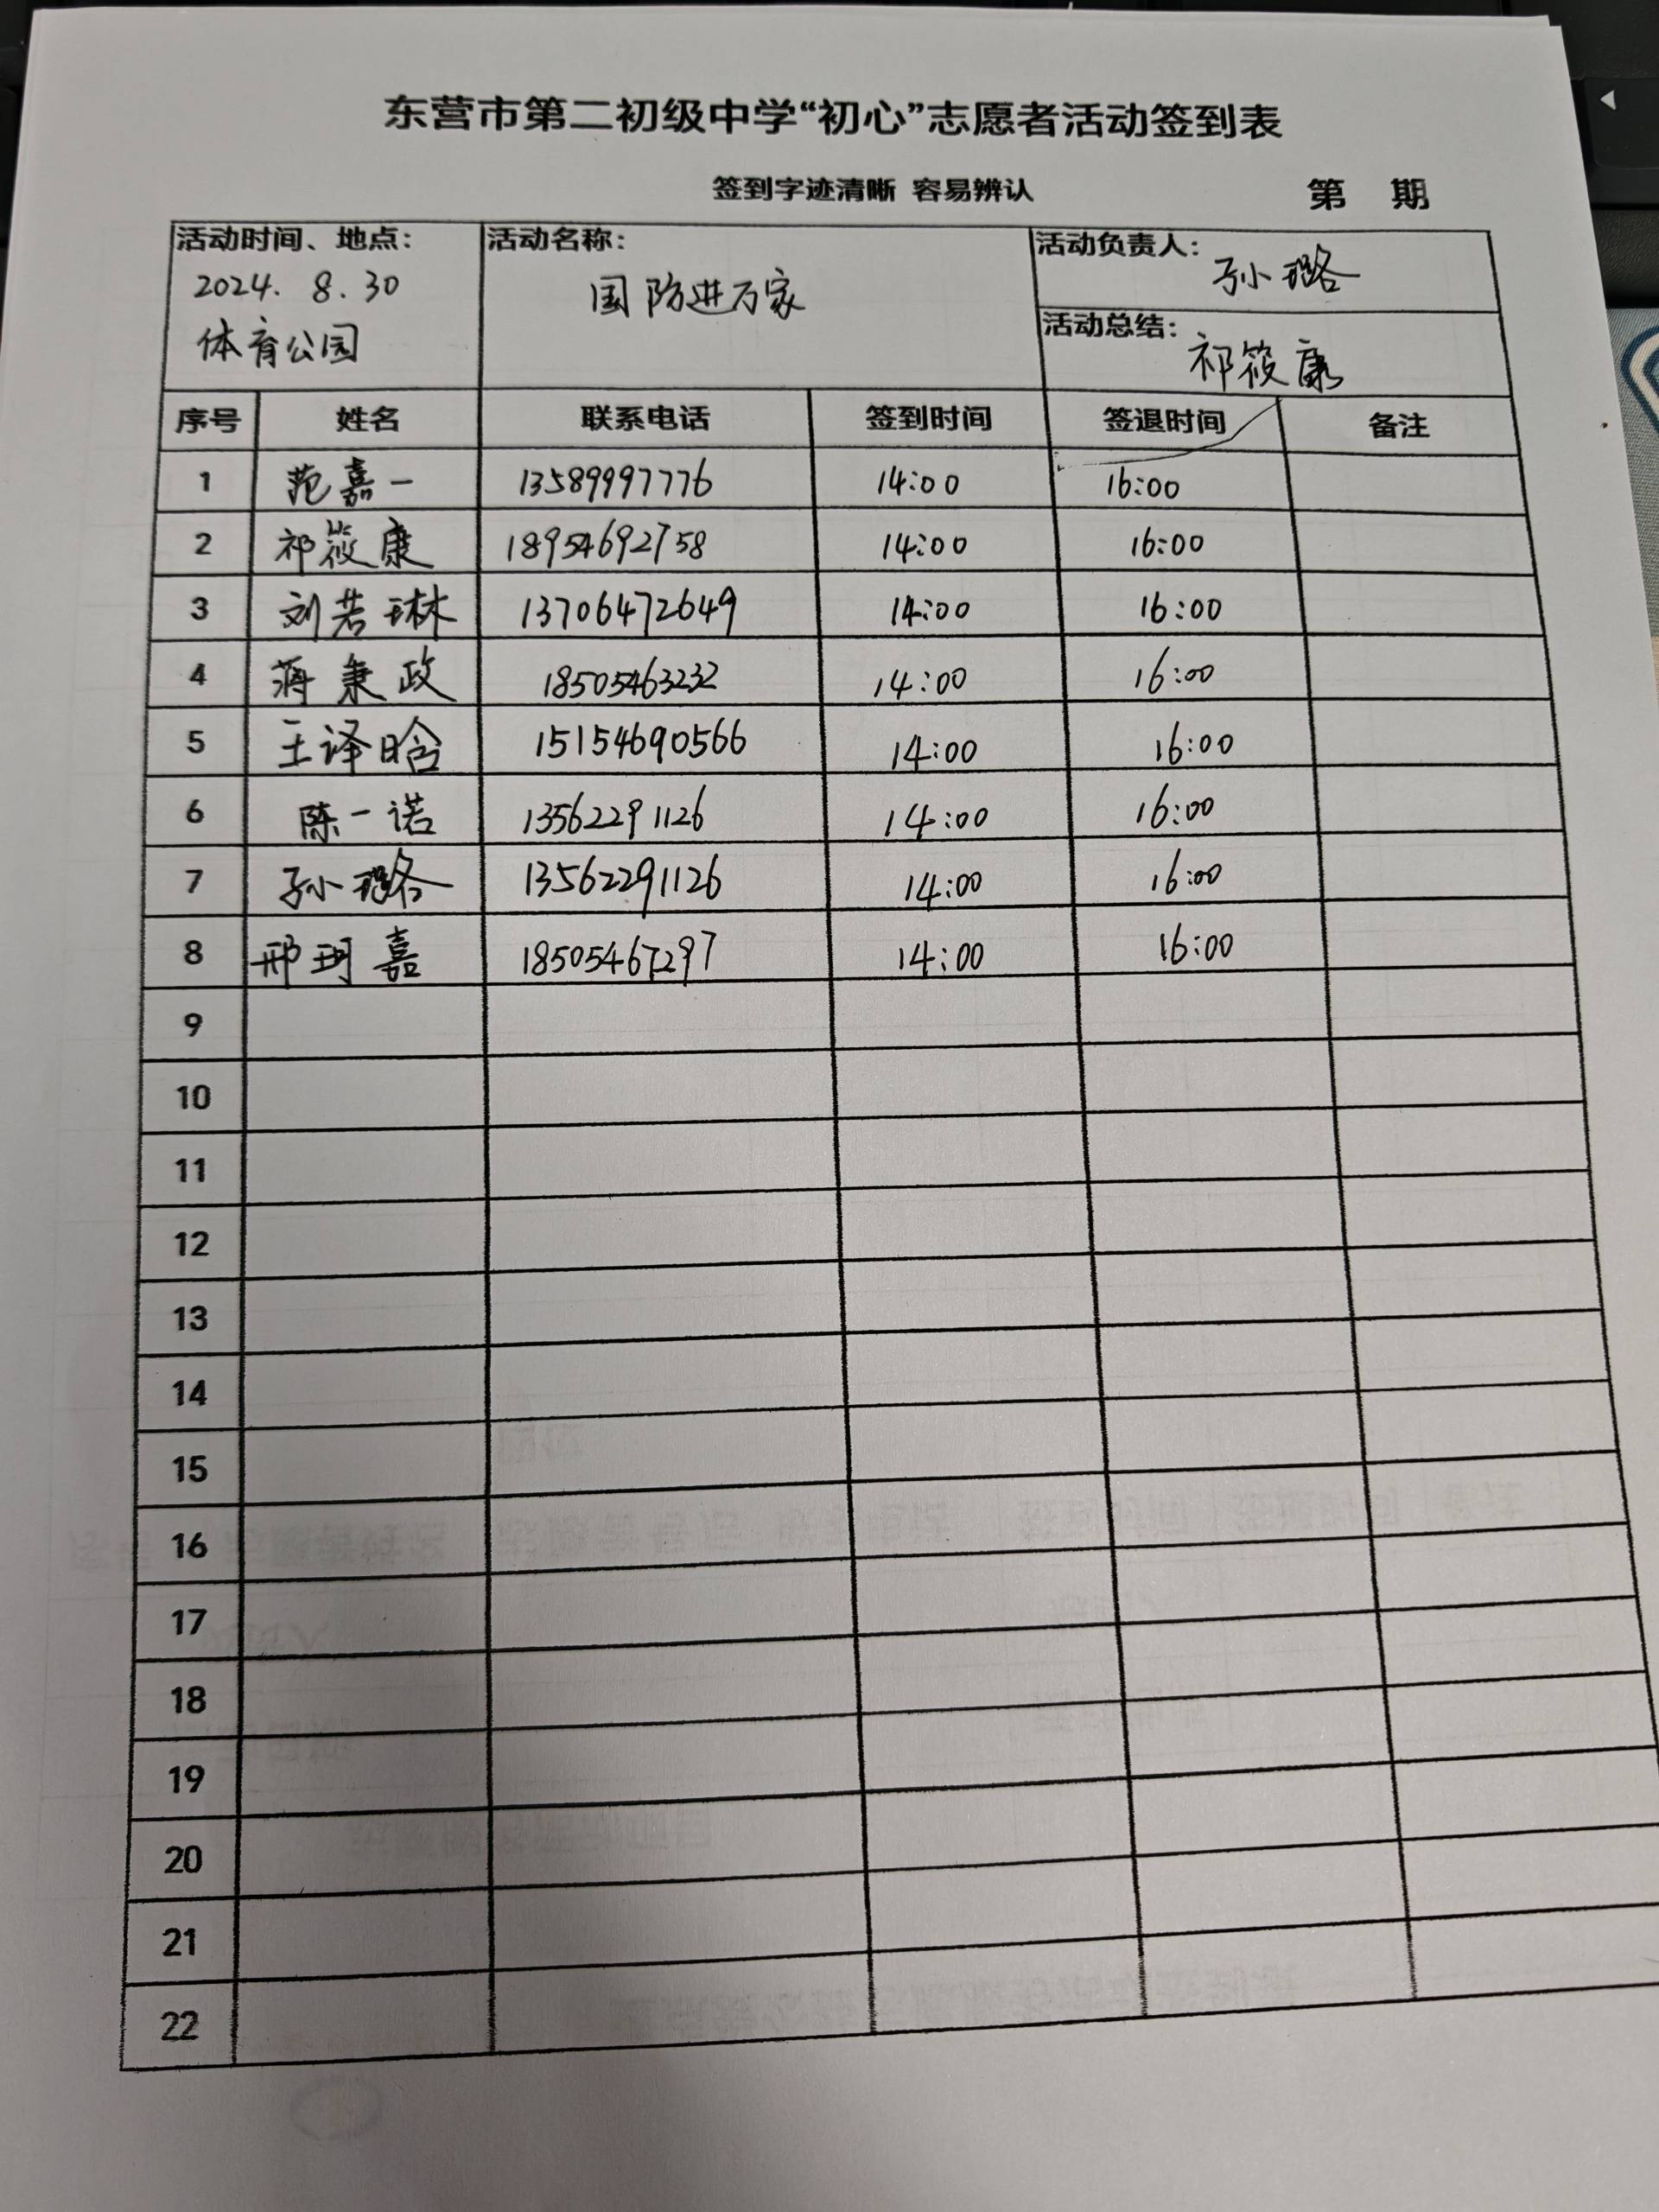 东营市第二初级中学“初心”志愿者活动签到表
签到字迹清晰 容易辨认
第 期
活动时间、地点：
2024. 8. 30
体育公园
活动名称：
国防进万家
活动负责人：
孙璐
活动总结：
祁筱康
序号 姓名 联系电话 签到时间 签退时间 备注
1 范嘉一 13589997776 14:00 16:00
2 祁筱康 18954692758 14:00 16:00
3 刘若琳 13706472649 14:00 16:00
4 蒋秉政 18505463232 14:00 16:00
5 王译晗 15154690566 14:00 16:00
6 陈一诺 13562291126 14:00 16:00
7 孙璐 13562291126 14:00 16:00
8 邢珂嘉 18505467297 14:00 16:00
9
10
11
12
13
14
15
16
17
18
19
20
21
22